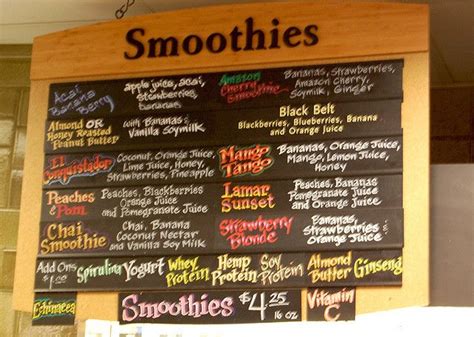 Smoothies
Acai
Banana
Berry
apple juice, acai,
strawberries,
bananas
Almond or
Honey Roasted
Peanut Butter
with Bananas &
Vanilla Soymilk
El
Conquistador
Coconut, Orange Juice,
Lime Juice, Honey,
Strawberries, Pineapple
Peaches
& Pom
Peaches, Blackberries
Orange Juice
and Pomegranate Juice
Chai
Smoothie
Chai, Banana
Coconut Nectar
and Vanilla Soy Milk
Amazon
Cherry
Smoothie
Bananas, Strawberries,
Amazon Cherry,
Ginger
Black Belt
Blackberries, Blueberries, Banana
and Orange Juice
Mango
Tango
Bananas, Orange Juice,
Mango, Lemon Juice,
Honey
Lamar
Sunset
Peaches, Bananas
Orange Juice
and Pomegranate Juice
Strawberry
Blonde
Bananas,
Strawberries
Orange Juice
Add Ons
$1.00
Spirulina
Yogurt
Whey
Protein
Hemp
Protein
Soy
Protein
Almond
Butter
Ginseng
Echinacea
Smoothies $4.25
16 oz
Vitamin
C